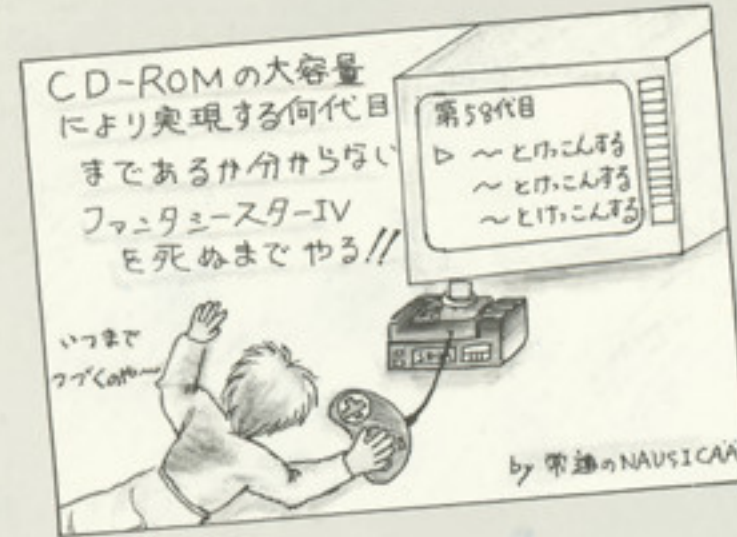 CD-ROMの大容量
により実現する何代目
まであるか分からない
ファンタシースターIV
を死ぬまでやる!!
第58代目
▷ 〜とけっこんする
〜とけっこんする
〜とけっこんする
いつまで
つづくのや〜
by 常連のNAUSICAÄ